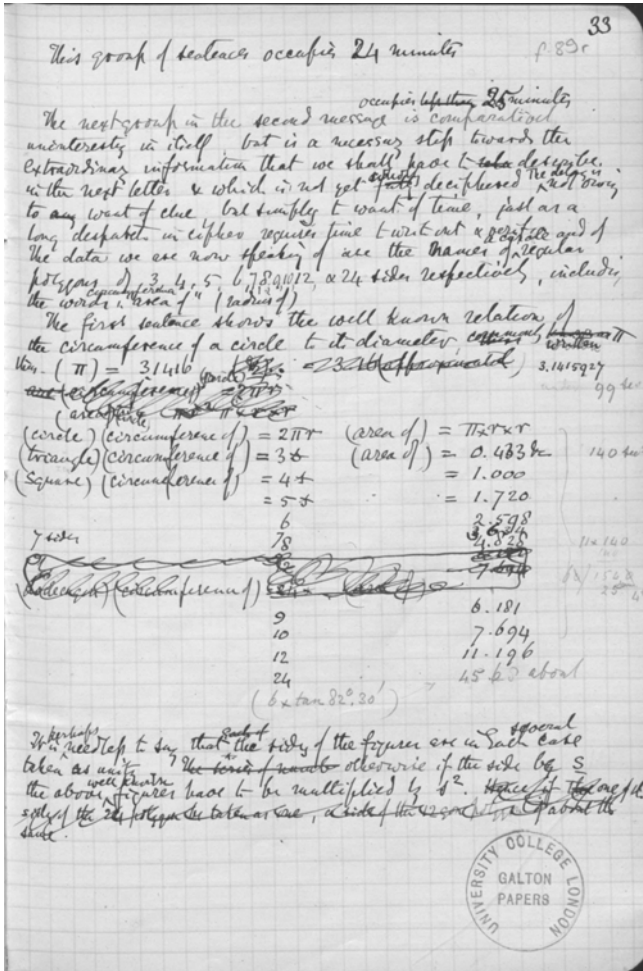 33
This group of sentences occupies 24 minutes
f. 89r
occupies less than 25 minutes
The next group in the second message is comparatively
uninteresting in itself, but is a necessary step towards the
extraordinary information that we shall have to describe
in the next letter & which is not yet wholly deciphered The delay is not owing
to any want of clue, but simply to want of time, just as a
long despatch in cipher requires time to write out &
The data we are now speaking of are the names of a circle and of regular
polygons of 3, 4, 5, 6, 7, 8, 9, 10, 12, & 24 sides respectively, including
the words "circumference" "area of" (radius of)
The first sentence shows the well known relation of
the circumference of a circle to its diameter, commonly written π
thus. (π) = 31416 3.1415927
99 sec
(circle) (circumference of) = 2πr (area of) = π×r×r
(triangle) (circumference of) = 3 s (area of) = 0.433 &c 140 sec
(square) (circumference of) = 4 s = 1.000
= 5 s = 1.720
6 2.598
7 sides 7 3.634
8 4.828
11 x 140
9 6.181
10 7.694
12 11.196
24 45.68 about
(6 x tan 82°.30')
It is perhaps needless to say that each of the sides of the figures are in each several case
taken as unity otherwise if the side be S
the above well known figures have to be multiplied by s².
same.
UNIVERSITY COLLEGE LONDON
GALTON
PAPERS